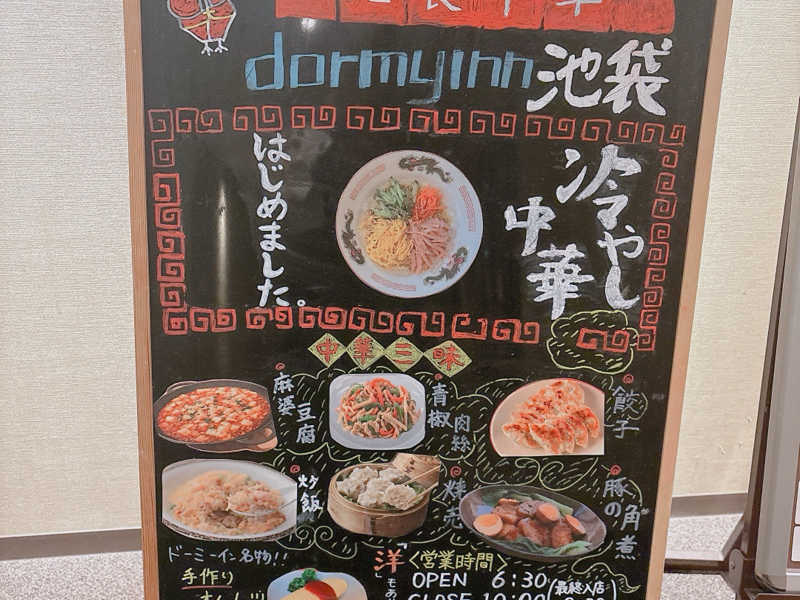 dormyinn 池袋
冷やし
中華
はじめました。
中華三昧
麻婆
豆腐
青椒
肉絲
餃子
炒飯
焼売
豚の
角煮
ドーミーイン名物!!
手作り
「洋」もあ
〈営業時間〉
OPEN 6:30
CLOSE 10:00
(最終入店